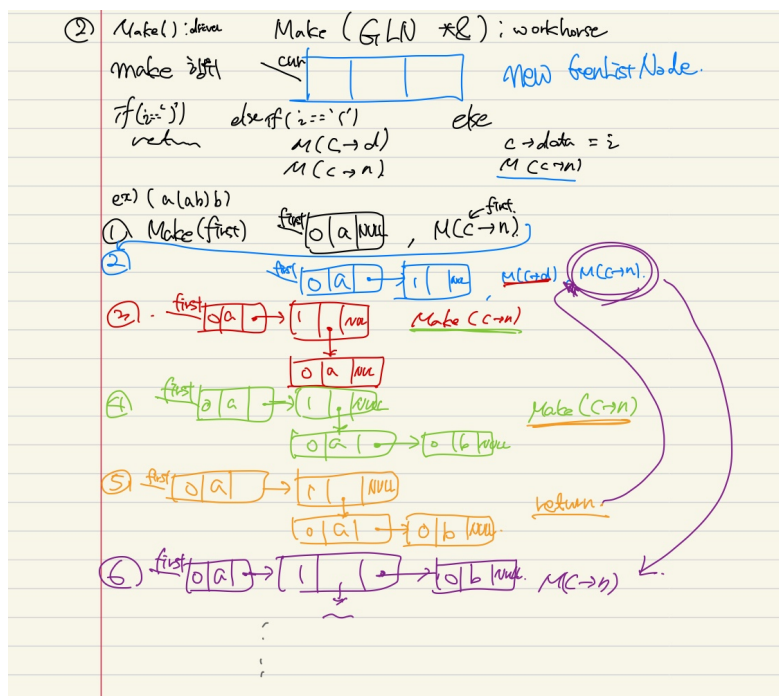 ② Make() : driver Make (GLN *&) ; workhorse
make 할때 cur new GenListNode.
if(i==')') else if(i=='(') else
return M(C→d) c→data = i
M(C→n) M(C→n)
ex) (a(ab)b)
first
① Make(first) first 0 a NULL , M(C→n)
② first 0 a 1 NULL , M(C→d) M(C→n).
③ . first 0 a 1 NULL Make(C→n)
0 a NULL
④ first 0 a 1 NULL Make(C→n)
0 a 0 b NULL
⑤ first 0 a 1 NULL return
0 a 0 b NULL.
⑥ first 0 a 1 0 b NULL. M(C→n)